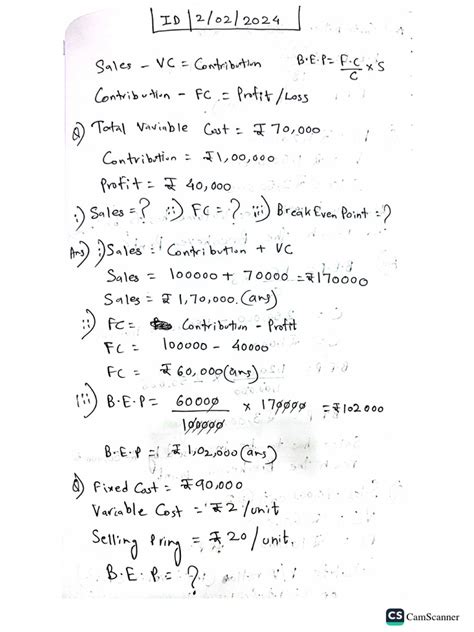 ID 2/02/2024
Sales - VC = Contribution B.E.P = F.C/C × S
Contribution - FC = Profit/Loss
Q) Total Variable Cost = ₹70,000
Contribution = ₹1,00,000
Profit = ₹ 40,000
i) Sales = ? ii) FC = ? iii) Break Even Point = ?
Ans) i) Sales = Contribution + VC
Sales = 100000 + 70000 = ₹170000
Sales = ₹ 1,70,000. (ans)
ii) FC = Contribution - Profit
FC = 100000 - 40000
FC = ₹ 60,000 (ans)
iii) B.E.P = 60000/100000 × 170000 = ₹102000
B.E.P = ₹1,02,000 (ans)
Q) Fixed Cost = ₹90,000
Variable Cost = ₹2/unit
Selling Pring = ₹20/unit.
B.E.P. = ?
CS CamScanner